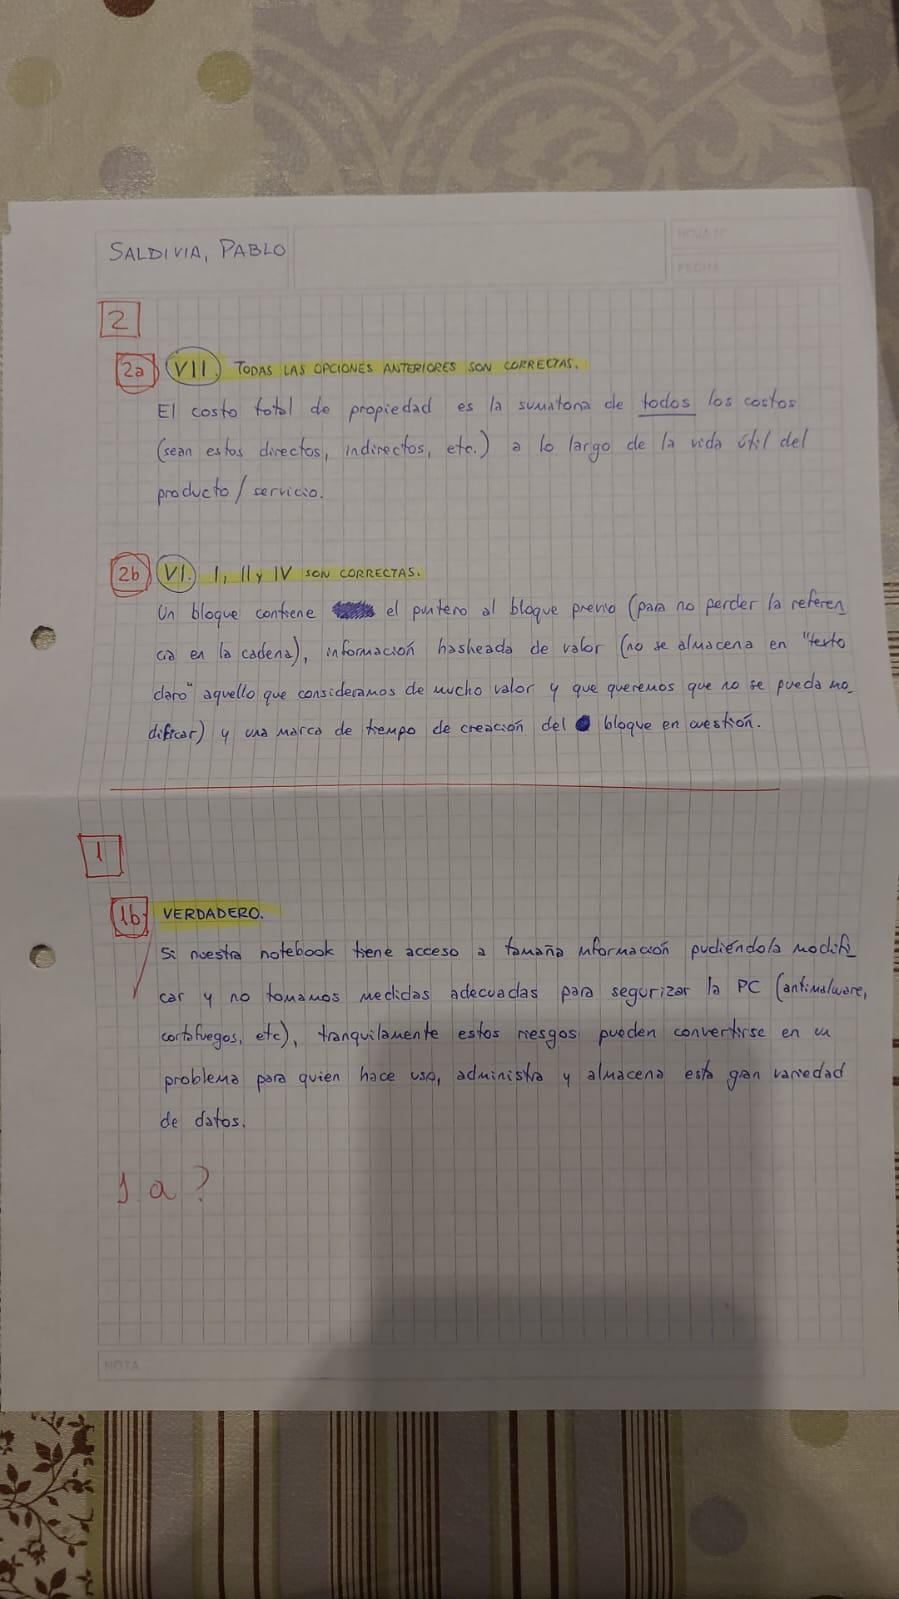 SALDIVIA, PABLO
HOJA Nº
FECHA
2
2a VII. TODAS LAS OPCIONES ANTERIORES SON CORRECTAS.
El costo total de propiedad es la sumatoria de todos los costos
(sean estos directos, indirectos, etc.) a lo largo de la vida útil del
producto/servicio.
2b VI. I, II y IV SON CORRECTAS.
Un bloque contiene el puntero al bloque previo (para no perder la referen
cia en la cadena), información hasheada de valor (no se almacena en "texto
claro" aquello que consideramos de mucho valor y que queremos que no se pueda mo_
dificar) y una marca de tiempo de creación del bloque en cuestión.
1
1b VERDADERO.
Si nuestra notebook tiene acceso a tamaña información pudiéndola modifi_
car y no tomamos medidas adecuadas para segurizar la PC (antimalware,
cortafuegos, etc), tranquilamente estos riesgos pueden convertirse en un
problema para quien hace uso, administra y almacena esta gran variedad
de datos.
1 a ?
NOTA